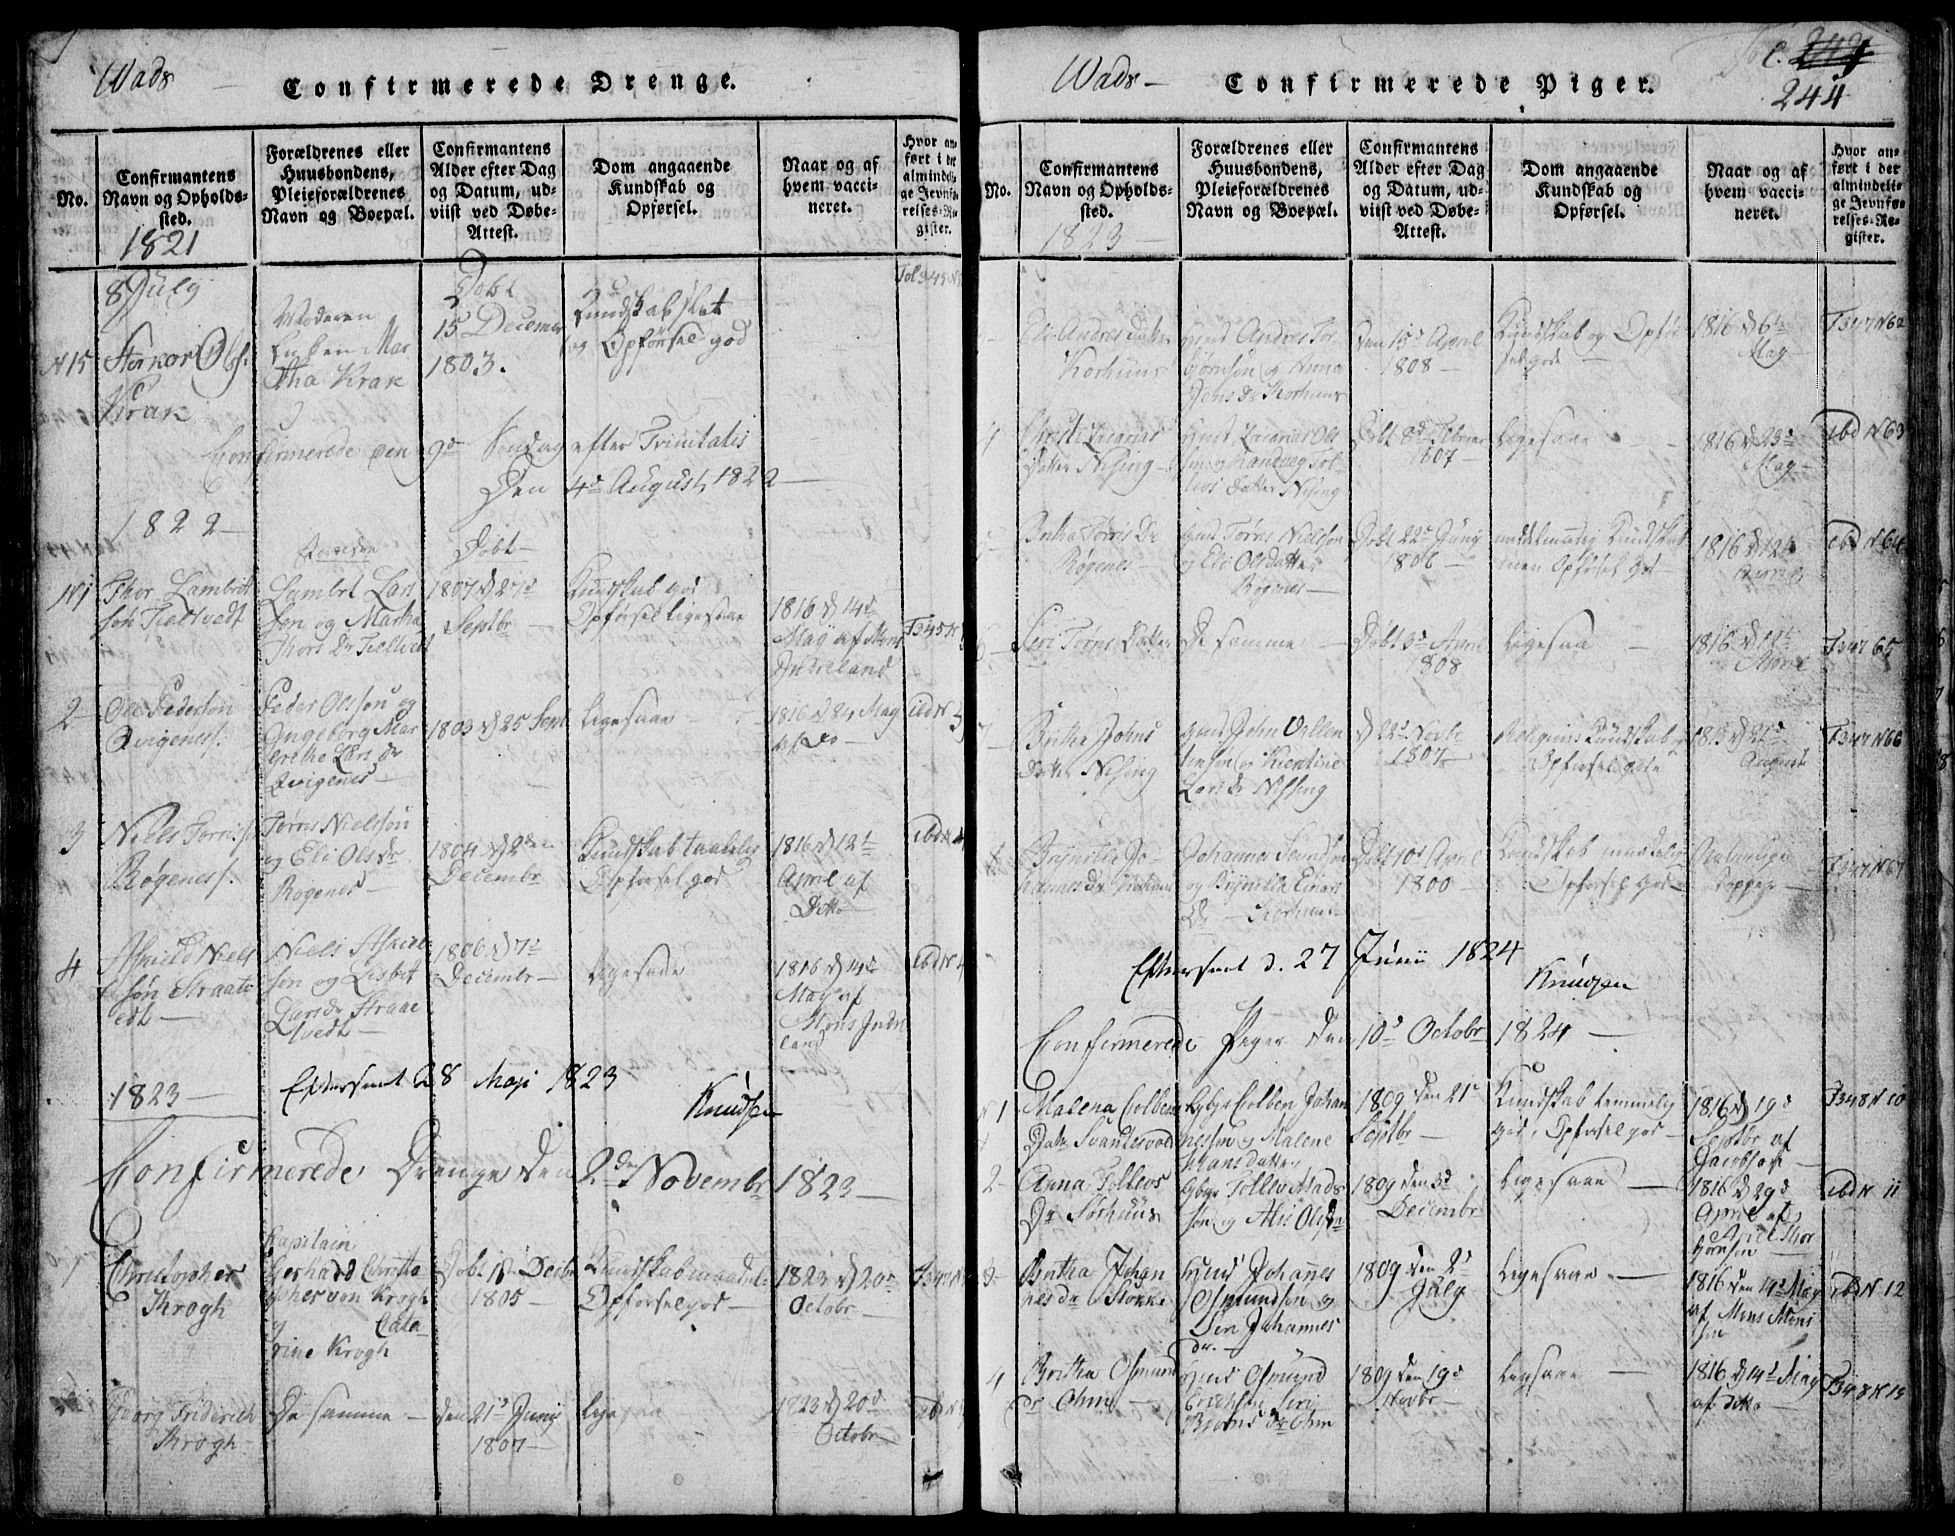 Wads
Confirmerede Drenge.
No.
Confirmantens
Navn og Opholds-
sted.
Forældrenes eller
Huusbondens,
Pleieforældrenes
Navn og Boepæl.
Confirmantens
Alder efter Dag
og Datum, ud-
viist ved Døbe-
Attest.
Dom angaaende
Kundskab og
Opførsel.
Naar og af
hvem vacci-
neret.
Hvor an-
ført i det
almindeli-
ge Jevnfø-
relses-Re-
gister.
1821
8 July
N 15
Krak
Moderen
Enken Mar
tha Krak
Dobt
15 Decemer
1803.
Kundskab slet
og Opførsel god
Confirmerede den 9de Sondag efter Trinitatis
Den 4de August 1822
1822
N 1
Thor Lambrit
søn Tieltvedt
Lambrt Lars
søn og Martha
Thors Dr Tieltvedt
Dobt
1807 D 27de
Septbr
Kundskab god
Opførsel ligesaae
1816 D 14de
May af Mons
Indreland
F 345 N
2
Ole Pedersøn
Qvigenes
Peder Olssøn og
Ingeborg Mar
gretha Lars Dr
Qvigenes
1803 D 25 Sept
Ligesaae
1816 D 24 May
af Do
ibd N
3
Niels Tørris
Røgenes
Tørris Nielssøn
og Eli Ols Dr
Røgenes
1804 D 2den
Decembr
Kundskab taalelig
Opførsel god
1816 D 12t
April af
Ditto
ibd N
4
Niels
søn Straat
edt
Niels
søn og Lisbet
Lars Dr Straae
tvedt
1806 D 7de
Decembr
Ligesaae
1816 D 14de
May af
Mons Indre
land
ibd N
1823
Efterseet 28 Maji 1823
Knudsen
Confirmerede Drenge den 2den Novembr 1823
1
Christopher
Krogh
Kapitain
Gerhard Christo
pher von Krogh
og Cata
rine Krogh
Dobt 18 Decbr
1805
Kundskab maadeli
Opførsel god
1823 D 20de
Octobr
F 347 N
Georg Friderich
Krogh
De samme
den 21de Juny
1807
Ligesaa
1823 D 20de
Octobr
ibd N
Wads
Confirmerede Piger.
244
No.
Confirmantens
Navn og Opholds-
sted.
Forældrenes eller
Huusbondens,
Pleieforældrenes
Navn og Boepæl.
Confirmantens
Alder efter Dag
og Datum, ud-
viist ved Døbe-
Attest.
Dom angaaende
Kundskab og
Opførsel.
Naar og af
hvem vacci-
neret.
Hvor an-
ført i det
almindelige
ge Jevnfø-
relses-Re-
gister.
1823
Eli Andres Datter
Korhuus
Andres Tor
biørnsen og Anna
Jens Dr Korhuus
den 15de April
1808
Kundskab og Opfør
sel god
1816 D 6te
May
F 347 N 62
4
Datter Nising
Zacarias Ols
Datter Nising
Dobt 8de Februar
1807
Ligesaae
1816 D 23de
May
ibd N 63
5
Britha Tørris Dr
Røgenes
Tørris Nielsøn
og Eli Olsdatter
Røgenes
Dobt 22de Juny
1806
maadelig Kundskab
men Opførsel god
1816 D 12te
April
ibd N 64
6
Siri Tørris Datter
De samme
Dobt 3de April
1808
Ligesaa
1816 D 12te
April
F 347 65
7
Britha Johns
Datter Nising
John Villum
Lars Dr Nissing
D 22de Novbr
1807
Religions Kundskab og
Opførsel gode
1815 D 21de
August
F 347 N 66
8
Brynille Jo
hannes Dr Korhuus
Johannes
og Brynille Einars
Dr Korhuus
Dobt 10de April
1800
Kundskab maadelig
Opførsel god
Naturlige
Kopper
F 347 N 67
Efterseet d. 27 Junii 1824
Knudsen
Confirmerede Piger den 10de Octobr 1824
N 1
Malena Colbens
Datr Svandesvold
Colben Johan
nessen og Malene
Hansdatter
1809 den 21de
Septbr
Kundskab temmelig
god, Opførsel god
1816 D 19de
Septbr af
Jacobsen
F 348 N 10
2
Anna Tollevs
Dr Sørhuus
Tollev Mads
søn og Alis Ols Dr
1809 den 3de
Decembr
Ligesaae
1816 D 29de
April af
Thor
biørnsen
ibd N 11
3
Britha Johan
nes Dr Stokke
Johannes
Osmundsøn og
Siri Johannes
dr.
1809 den 2de
July
Ligesaae
1816 den 14de May
af Mons Mons
sen
ibd N 12
4
Britha Osmund
dr Ohm
Osmund
Erichsen Siri
Biørns Dr Ohm
1809 den 19de
Novbr
Ligesaae
1816 D 14de May
af ditto
F 348 N 13